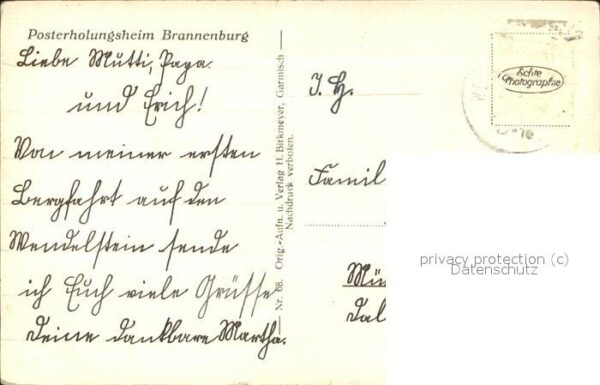 Posterholungsheim Brannenburg
Liebe Mutti, Papa
und Erich!
Von meiner ersten
Bergfahrt auf den
Wendelstein sende
ich Euch viele Grüsse
Deine dankbare Martha.
Nr. 168. Orig.-Aufn. u. Verlag H. Birkmeyer, Garmisch
Nachdruck verboten.
Echte
Photographie
I. H.
Famil
privacy protection (c)
Datenschutz
Mü